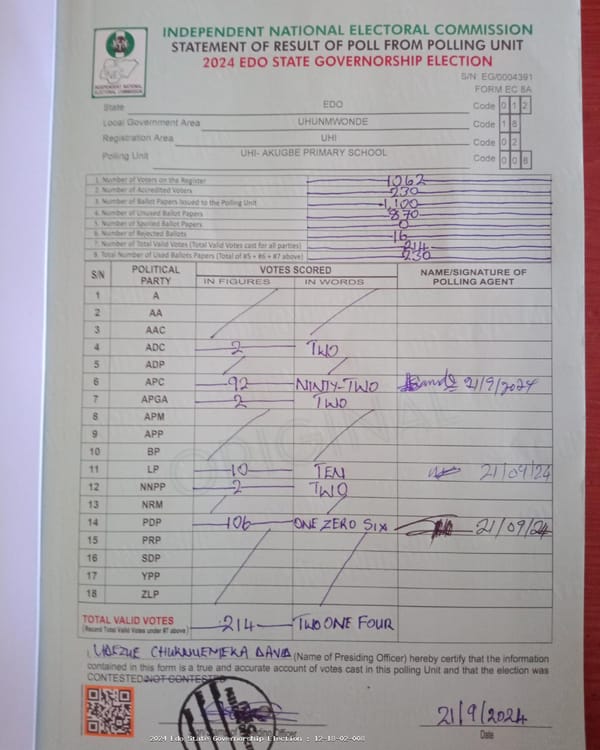 INDEPENDENT NATIONAL ELECTORAL COMMISSION
STATEMENT OF RESULT OF POLL FROM POLLING UNIT
2024 EDO STATE GOVERNORSHIP ELECTION
INDEPENDENT NATIONAL
ELECTORAL COMMISSION
S/N: EG/0004391
FORM EC 8A
State EDO Code 0 1 2
Local Government Area UHUNMWONDE Code 1 8
Registration Area UHI Code 0 2
Polling Unit UHI- AKUGBE PRIMARY SCHOOL Code 0 0 8
1. Number of Voters on the Register 1062
2. Number of Accredited Voters 230
3. Number of Ballot Papers Issued to the Polling Unit 1,100
4. Number of Unused Ballot Papers 870
5. Number of Spoiled Ballot Papers 0
6. Number of Rejected Ballots 16
7. Number of Total Valid Votes (Total Valid Votes cast for all parties) 214
8. Total Number of Used Ballots Papers (Total of #5 + #6 + #7 above) 230
S/N POLITICAL PARTY VOTES SCORED NAME/SIGNATURE OF POLLING AGENT
IN FIGURES IN WORDS
1 A
2 AA
3 AAC
4 ADC 2 TWO
5 ADP
6 APC 92 NINTY-TWO 21/9/2024
7 APGA 2 TWO
8 APM
9 APP
10 BP
11 LP 10 TEN 21/09/24
12 NNPP 2 TWO
13 NRM
14 PDP 106 ONE ZERO SIX 21/09/24
15 PRP
16 SDP
17 YPP
18 ZLP
ORIGINAL
TOTAL VALID VOTES 214 TWO ONE FOUR
(Record Total Valid Votes under #7 above)
I, CHUKWUEMEKA DAVID (Name of Presiding Officer) hereby certify that the information
contained in this form is a true and accurate account of votes cast in this polling Unit and that the election was
CONTESTED/NOT CONTESTED
21/9/2024
Date
2024 Edo State Governorship Election : 12-18-02-008